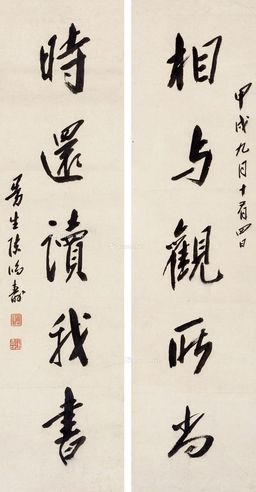 甲戌九月十有四日
相与觀所尚
時還讀我書
曼生陳鴻壽